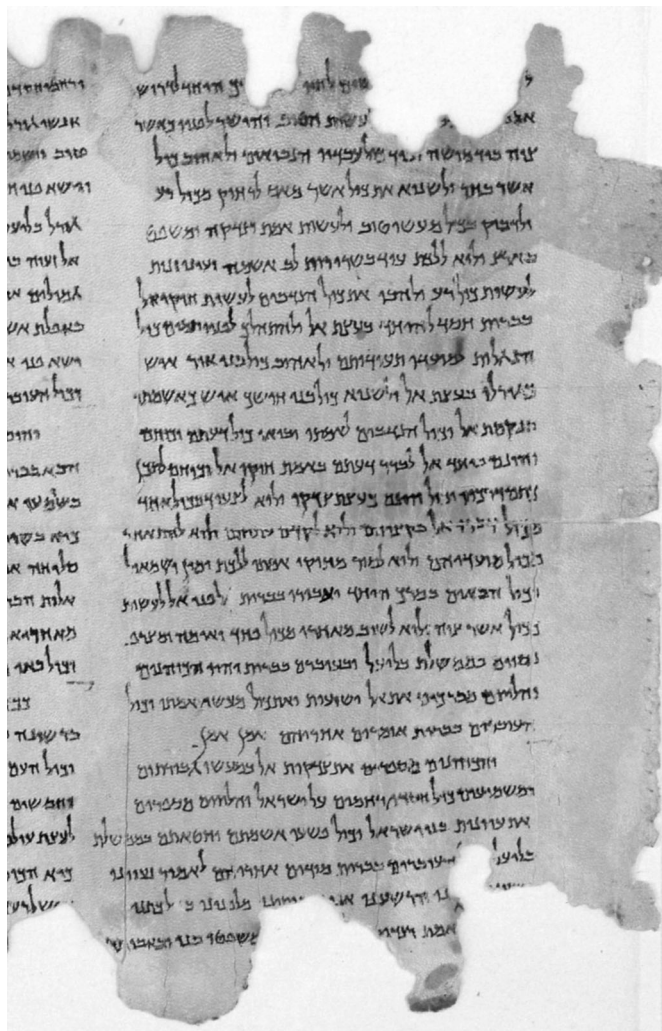 ל שים לחיו ך היחד לדרוש
אל עשות הטוב והישר לפניו כאשר
צוה ביד מושה וביד כול עבדיו הנביאים ולאהוב כול
אשר בחר ולשנוא את כול אשר מאס לרחוק מכול רע
ולדבוק בכול מעשי טוב ולעשות אמת וצדקה ומשפט
בארץ ולוא ללכת עוד בשרירות לב אשמה ועיני זנות
לעשות כול רע ולהבי את כול הנדבים לעשות חוקי אל
בברית חסד להיחד בעצת אל ולהתהלך לפניו תמים כול
הנגלות למועדי תעודותם ולאהוב כול בני אור איש
כגורלו בעצת אל ולשנוא כול בני חושך איש כאשמתו
בנקמת אל וכול הנדבים לאמתו יביאו כול דעתם וכוחם
והונם ביחד אל לברר דעתם באמת חוקי אל וכוחם לתכן
כתם דרכיו וכול הונם כעצת צדקו ולוא לצעוד בכול אחד
מכול דברי אל בקציהם ולוא לקדם עתיהם ולוא להתאחר
מכול מועדיהם ולוא לסור מחוקי אמתו ללכת ימין ושמאול
וכול הבאים בסרך היחד יעבורו בברית לפני אל לעשות
ככול אשר צוה ולוא לשוב מאחרו מכול פחד ואימה ומצרף
נסוים בממשלת בליעל ובעוברם בברית יהיו הכוהנים
והלויים מברכים את אל ישועות ואת כול מעשי אמתו וכול
העוברים בברית אומרים אחריהם אמן אמן
והכוהנים מספרים את צדקות אל במעשי גבורתום
ומשמיעים כול חסדי רחמים על ישראל והלויים מספרים
את עוונות בני ישראל וכול פשעי אשמתם וחטאתם בממשלת
בליעל העוברים בברית מודים אחריהם לאמור נעוינו
נו הרשענו אנו מלפנינו
אמת וצדי משפטו בנו ובאבותי
ורחמי חסדו
אנשי גורל
טוב
וישא פני
גורל בליעל
אל ועוד
גמולים
באפלת אש
ישא פני
וכול העוב
הבא בברי
בשמעו א
כיא בשלו
סליחה
אלות הבר
מאחרי א
וכול באי
וכול העם
לעצת עולמ
כיא הכול